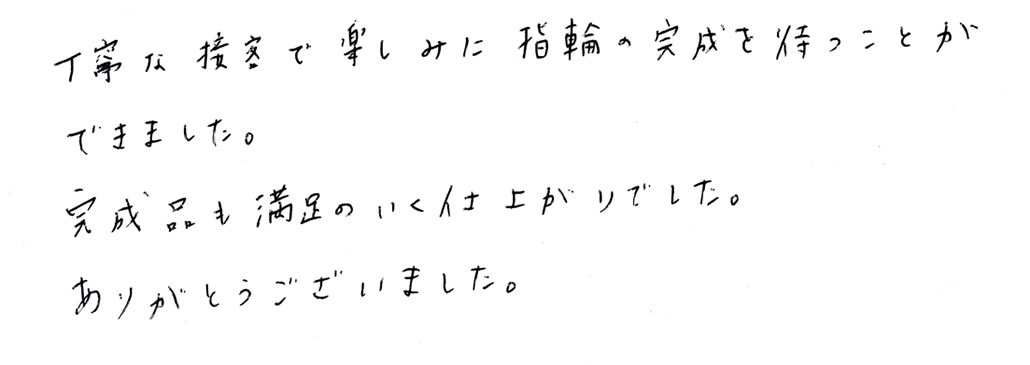 丁寧な接客で楽しみに指輪の完成を待つことが
できました。
完成品も満足のいく仕上がりでした。
ありがとうございました。